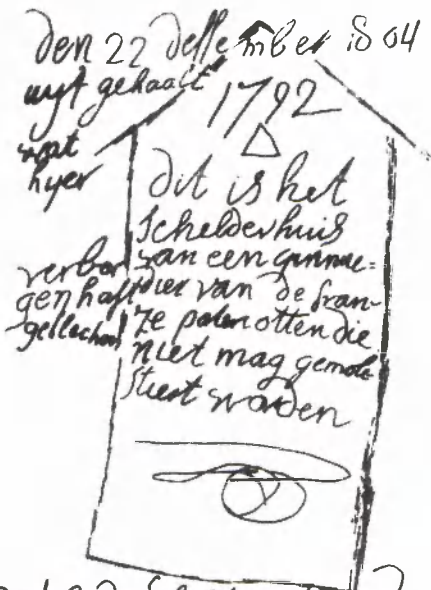 den 22 dessember 1804
uyt gehaalt
wat
hyer
verbor
gen haft
1792
dit is het
schelderhuis
van een gannac=
dier van de fran-
ze paterotten die
niet mag gemole
stiert worden